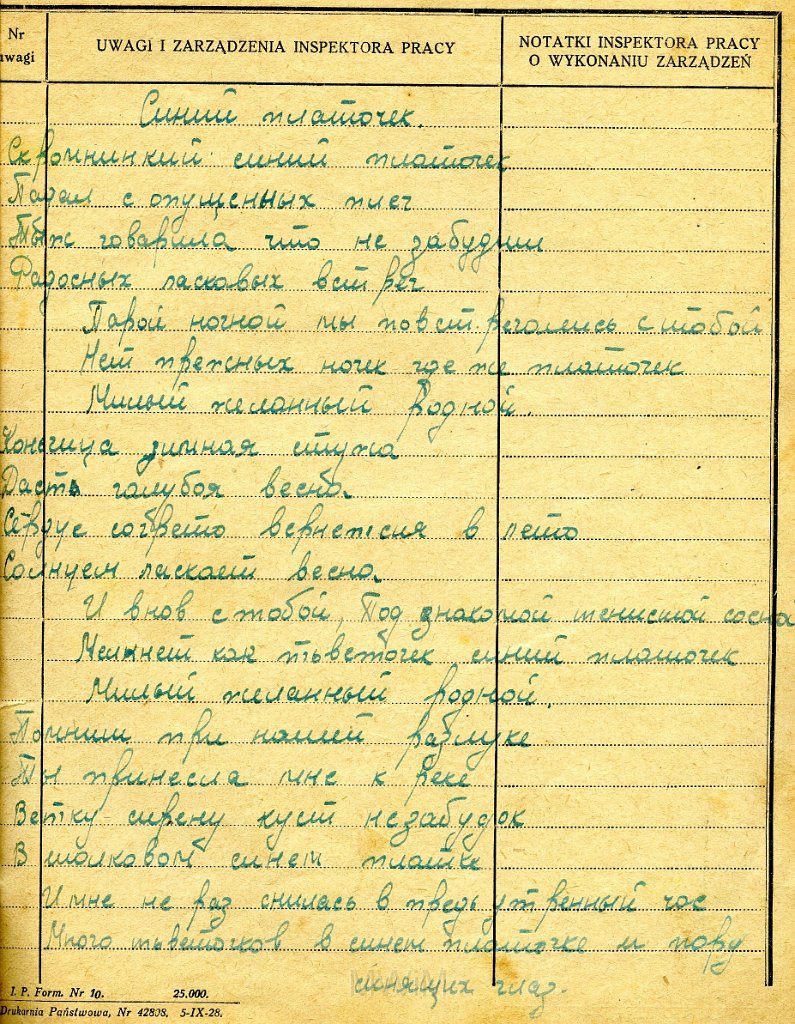 Nr uwagi
UWAGI I ZARZĄDZENIA INSPEKTORA PRACY
NOTATKI INSPEKTORA PRACY O WYKONANIU ZARZĄDZEŃ
Синий платочек.
Скромнинкий синий платочек
Падал с опущенных плеч
Тыж говарила что не забудиш
Радосных ласковых встреч
Парой ночной мы повстречолись с тобой
Нет прежных ночек где же платочек
Милый желанный родной.
Кончица зимная стужа
Дасть галубоя весна
Сердце согрето вернетсия в лето
Солнуем ласкает весна
И внов с тобой, Под знакомой тенистой сосна
Мелькнет как тьветочек синий платочек
Милый желанный родной.
Помниш при нашей разлуке
Ты принесла мне к реке
Ветку сирену куст незабудок
В шолковом синем платке
И мне не раз снилась в предь утренный час
Много тьветочков в синем платочке и пару
синящих глаз.
I. P. Form. Nr 10. 25.000.
Drukarnia Państwowa, Nr 42808. 5-IX-28.